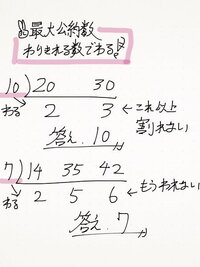 最大公約数
わりきれる数でわる!
10)20 30
わる 2 3 ←これ以上割れない
答え. 10
7)14 35 42
わる 2 5 6 ←もうわれない
答え. 7